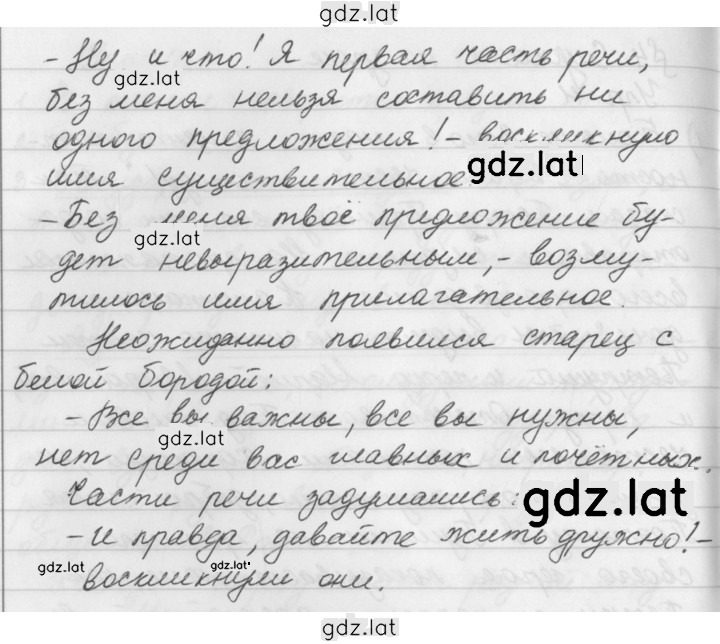 gdz.lat
- Ну и что! Я первая часть речи,
gdz.lat
без меня нельзя составить ни
одного предложения! - воскликнуло
gdz.lat
имя существительное.
- Без меня твоё предложение бу-
gdz.lat
дет невыразительным, - возму-
тилось имя прилагательное.
Неожиданно появился старец с
белой бородой:
- Все вы важны, все вы нужны,
gdz.lat
нет среди вас главных и почётных.
Части речи задумались:
gdz.lat
- И правда, давайте жить дружно! -
gdz.lat gdz.lat
воскликнули они.
gdz.lat